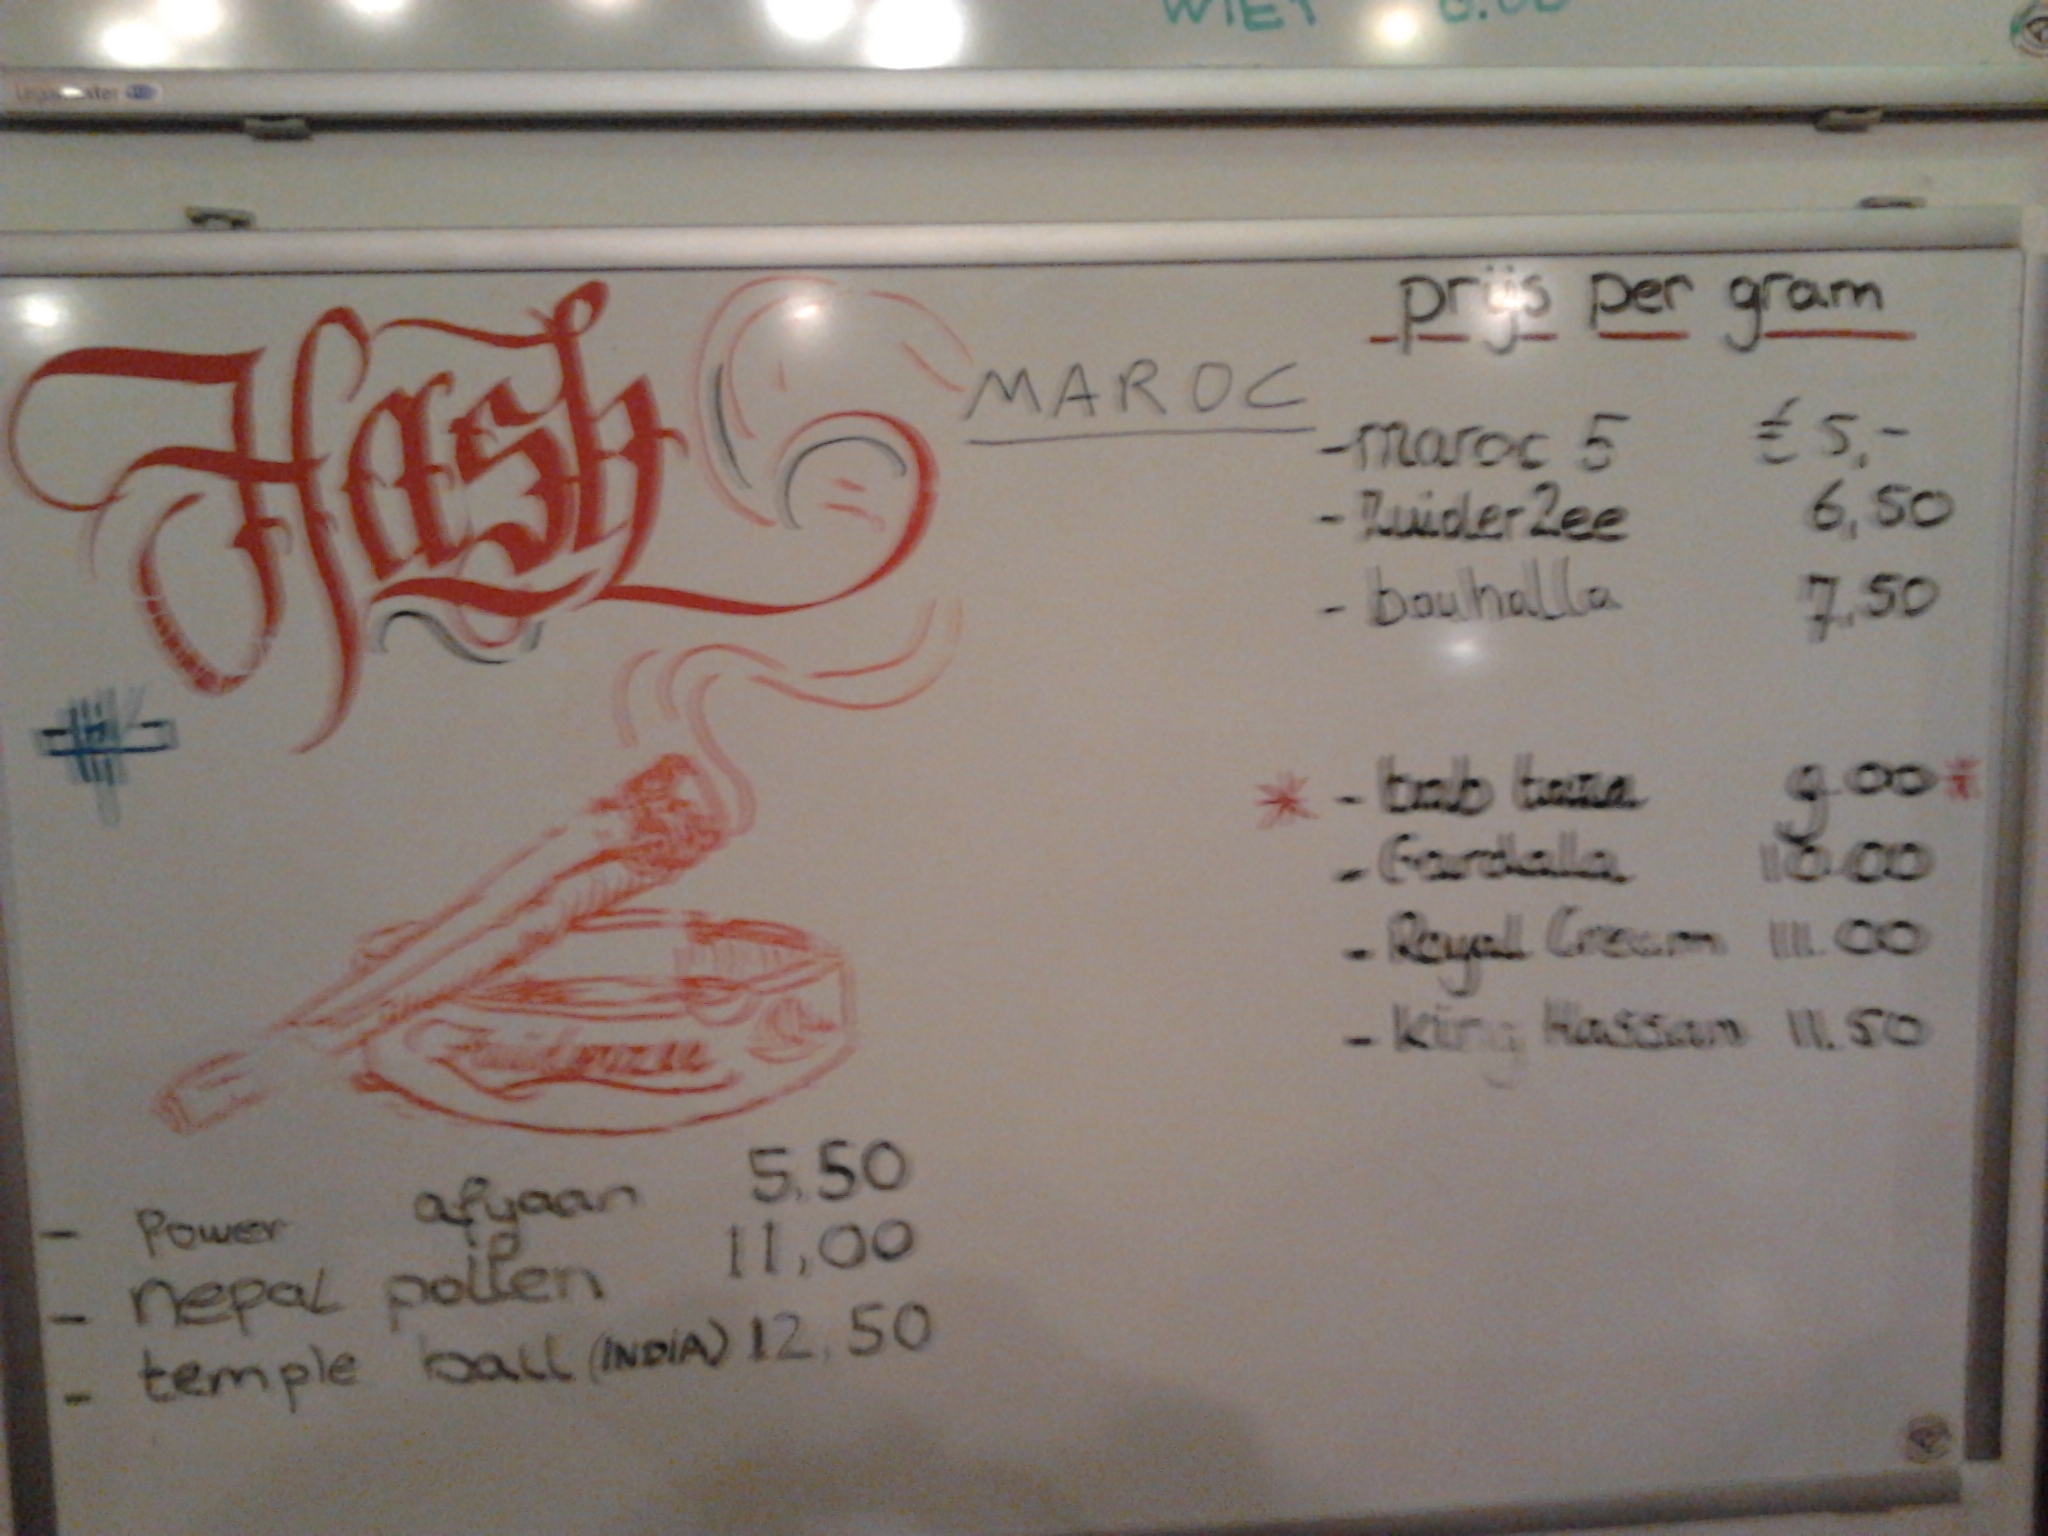 WIET
Hash
MAROC
prijs per gram
- maroc 5 € 5,-
- ZuiderZee 6,50
- bouhalla 7,50
* - bab taza 9.00 *
- Gardalla 10.00
- Royal Cream 11.00
- King Hassan 11.50
Zuiderzee
- Power afgaan 5.50
- nepal pollen 11,00
- temple ball (INDIA) 12.50